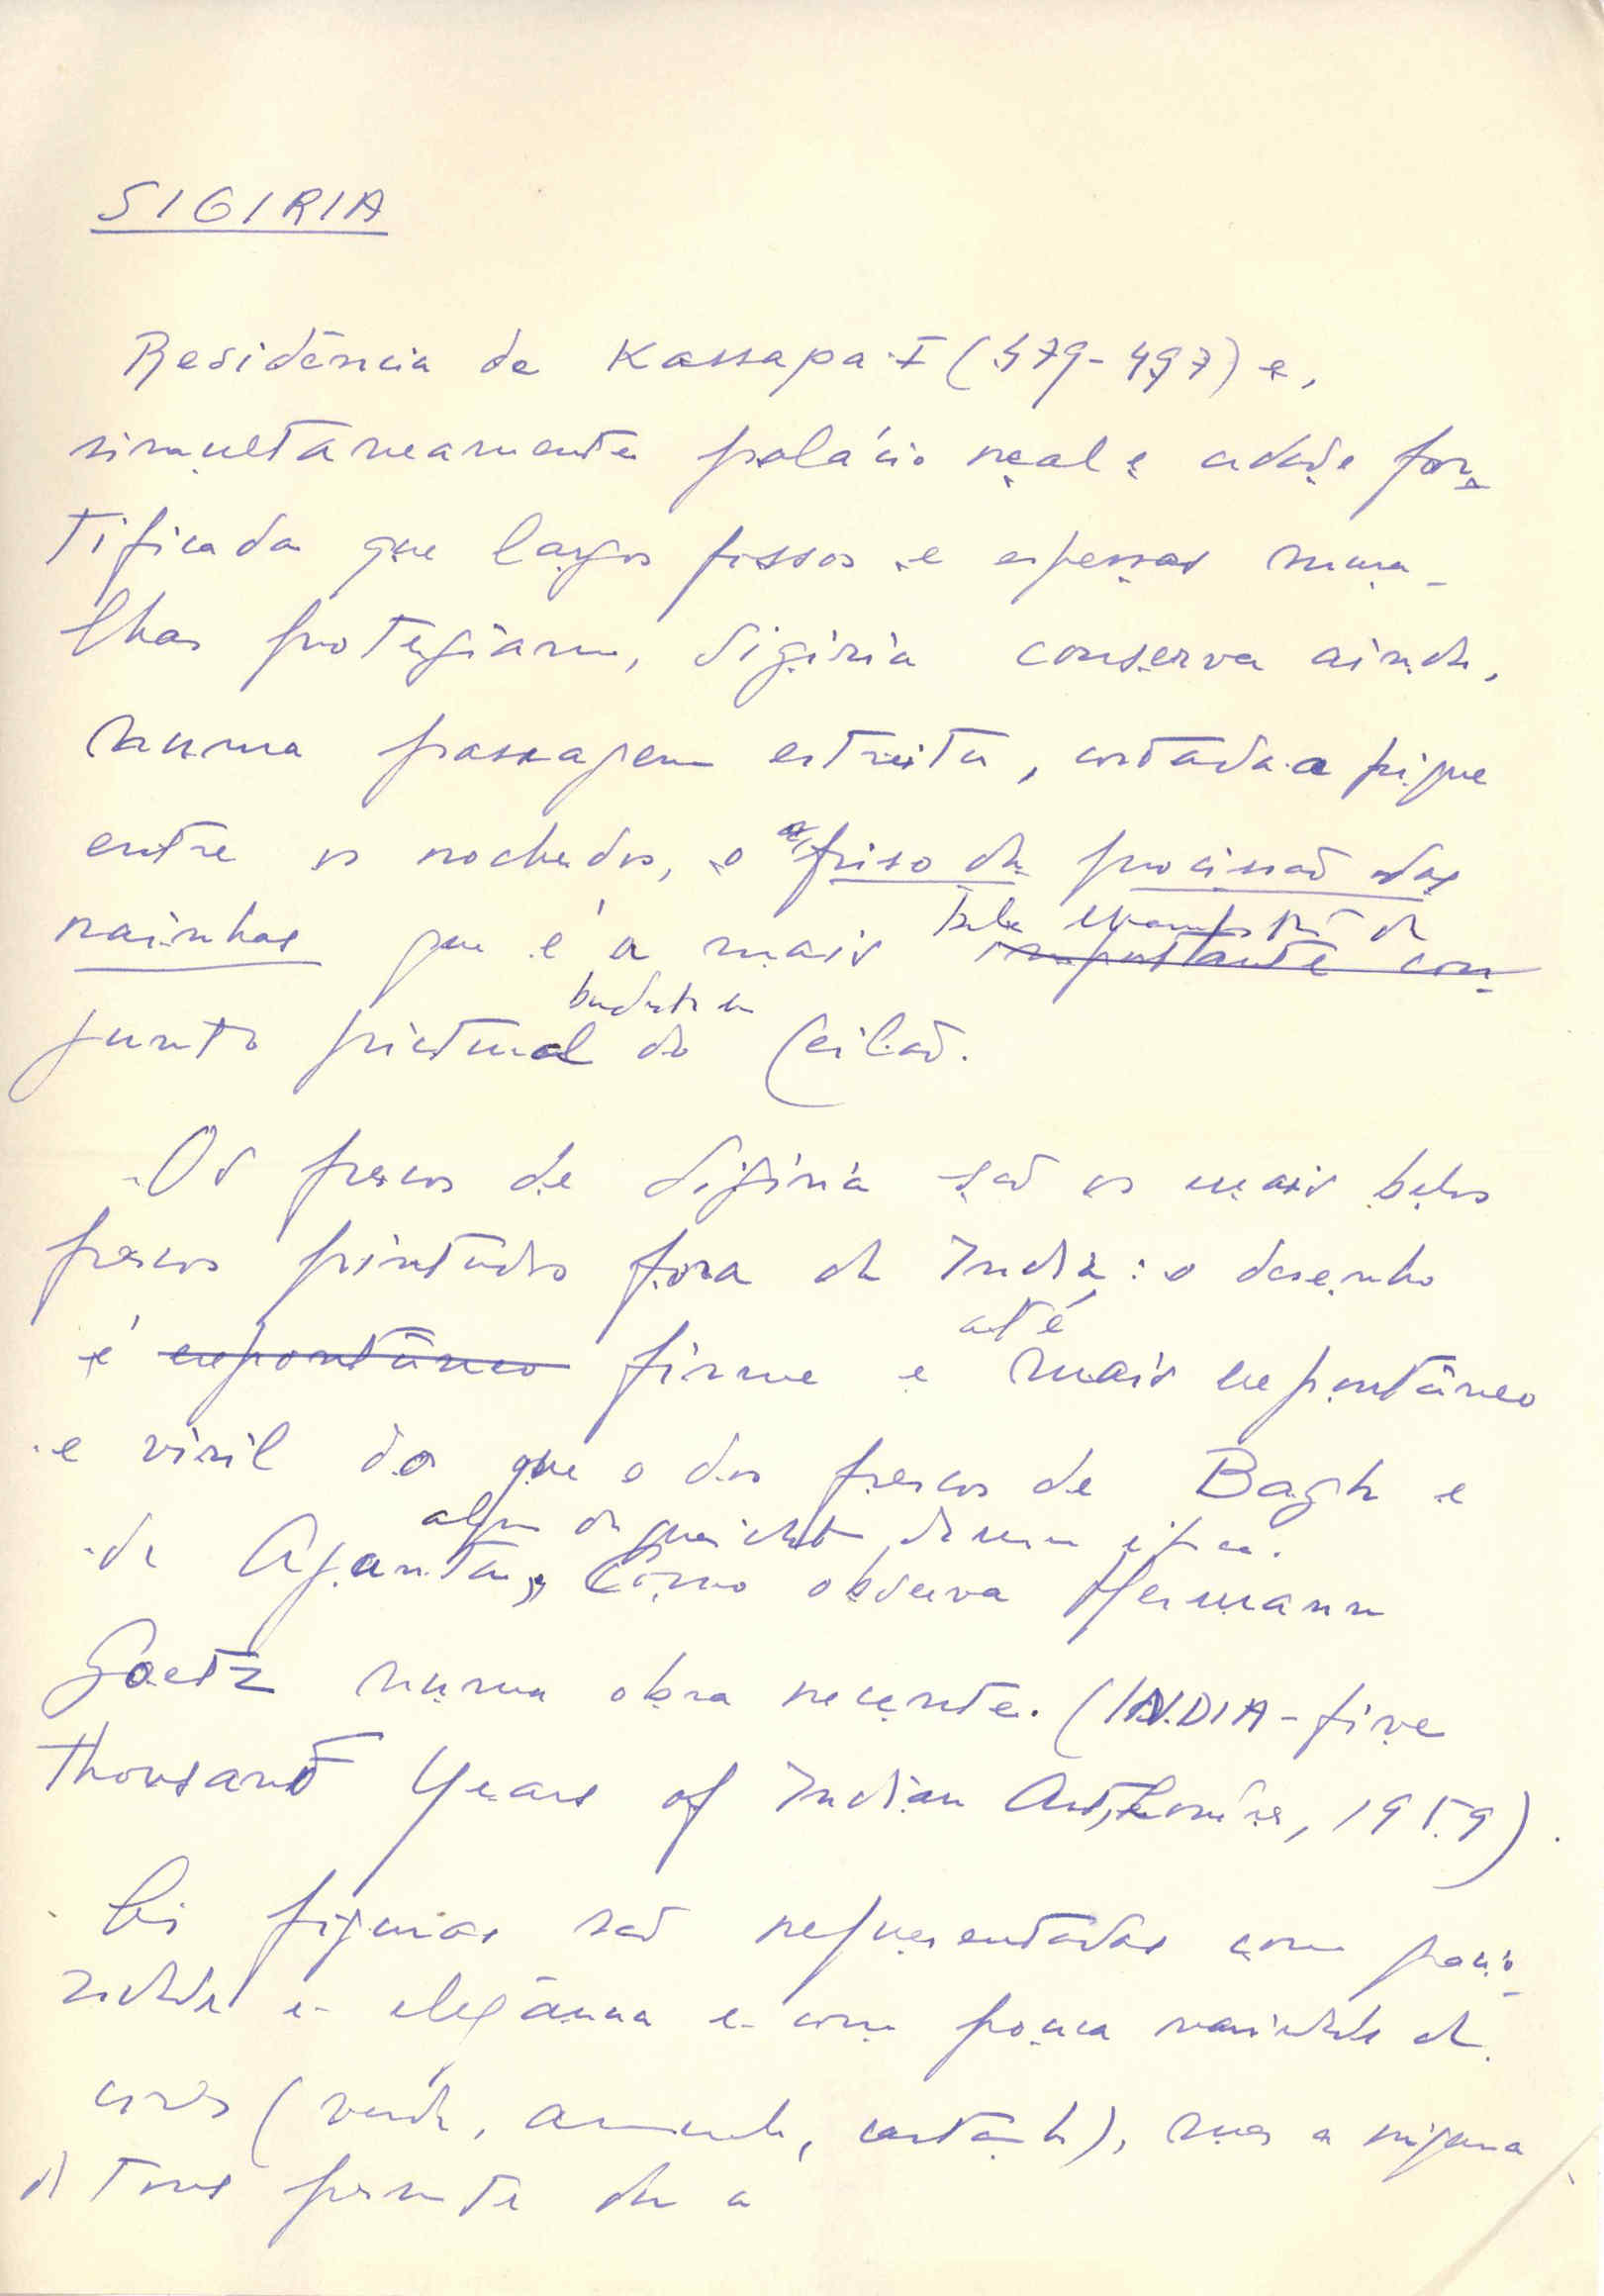 SIGIRIA
Residência de Kassapa I (479-497) e,
simultaneamente palácio real e cidade for-
tificada que largos fossos e espessas mura-
lhas protegiam, Sigiria conserva ainda,
numa passagem estreita, cortada a pique
entre os rochedos, o friso da procissão das
rainhas que é a mais
bela de
importante con-
budista
junto pictural do Ceilão.
Os frescos de Sigiria são os mais belos
frescos pintados fora da India: o desenho
até
é espontâneo firme e mais espontâneo
e viril do que o dos frescos de Bagh e
de Ajanta, Como observa Hermann
Goetz numa obra recente. (INDIA - five
thousand Years of Indian Art, Londres, 1959).
As figuras são representadas com precio-
sidade e elegância e com pouca variedade de
cores (verde, amarelo, castanho), mas a riqueza
de tons permite da a